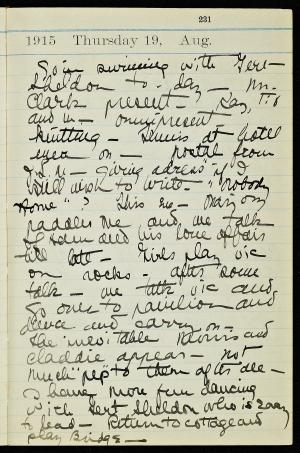 231
1915 Thursday 19, Aug.
Go in swimming with Gert
Sheldon to-day - Mr.
Clark present - Kay,
and in - omnipresent
knitting - tennis at hotel
- postal from
- giving adress "if I
would wish to write - "nobody
home"? This eve - Mary and
paddles me and we talk
of Sam and his love affairs
till late - Girls play vic
on rocks - after some
talk - we take vic and
go over to pavilion and
dance and carry on -
The inevitable Morris and
Claddie appear - not
much "pep" to them after all -
I have more fun dancing
with Gert Sheldon who is easy
to lead - Return to cottage and
play Bridge -